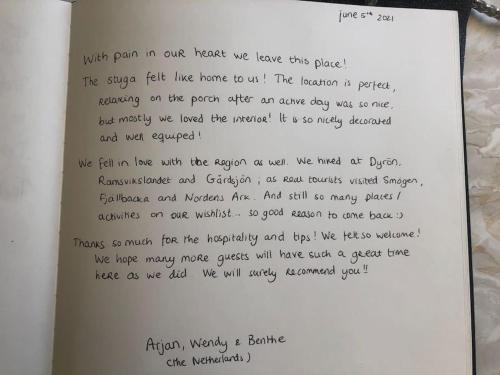 june 5th 2021
With pain in our heart we leave this place!
The stuga felt like home to us! The location is perfect,
relaxing on the porch after an active day was so nice,
but mostly we loved the interior! It is so nicely decorated
and well equiped!
We fell in love with the region as well. We hiked at Dyrön,
Ramsvikslandet and Gårdsjön; as real tourists visited Smögen,
Fjällbacka and Nordens Ark. And still so many places/
activities on our wishlist... so good reason to come back :)
Thanks so much for the hospitality and tips! We felt so welcome!
We hope many more guests will have such a great time
here as we did. We will surely recommend you!!
Arjan, Wendy & Benthe
(the Netherlands)